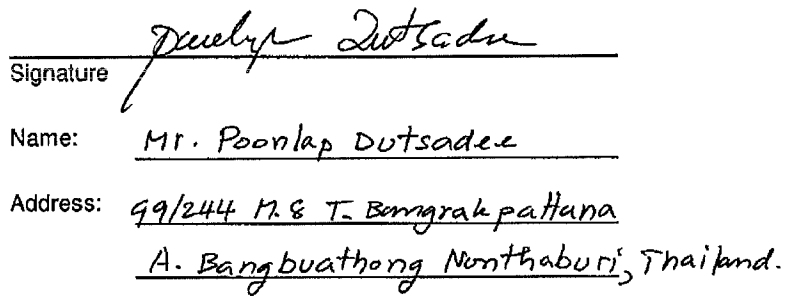 Poonlap Dutsadee
Signature
Name: Mr. Poonlap Dutsadee
Address: 99/244 M.8 T. Bangrakpattana
A. Bangbuathong Nonthaburi, Thailand.